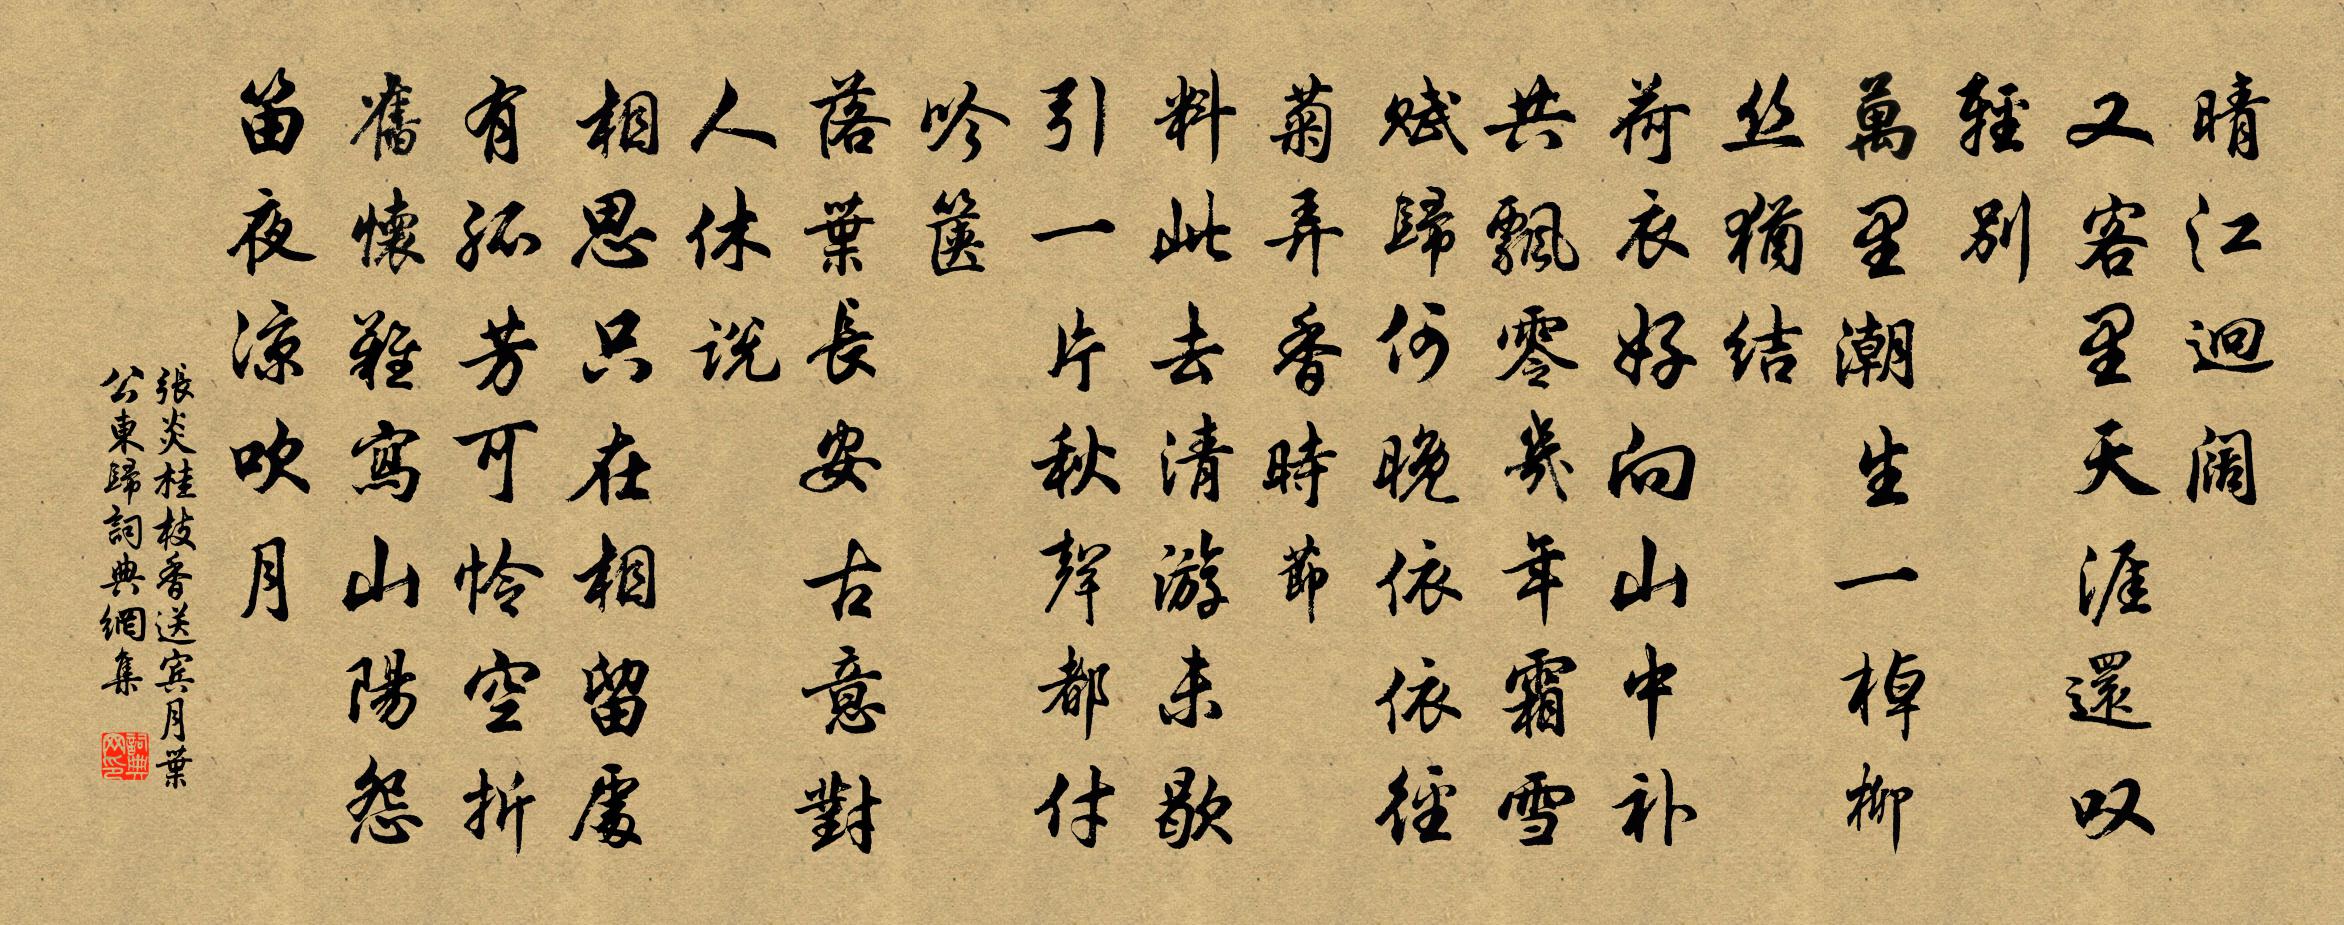 晴江迥阔
又客里天涯還叹
輕别
萬里潮生一棹柳
丝猶结
荷衣好向山中补
共飄零幾年霜雪
赋歸何晚依依徑
菊弄香時節
料此去清游未歇
引一片秋聲都付
吟箧
落葉長安古意對
人休说
相思只在相留處
有孤芳可怜空折
舊懷難寫山陽怨
笛夜凉吹月
張炎桂枝香送宾月葉
公東歸詞典網集
詞典网印